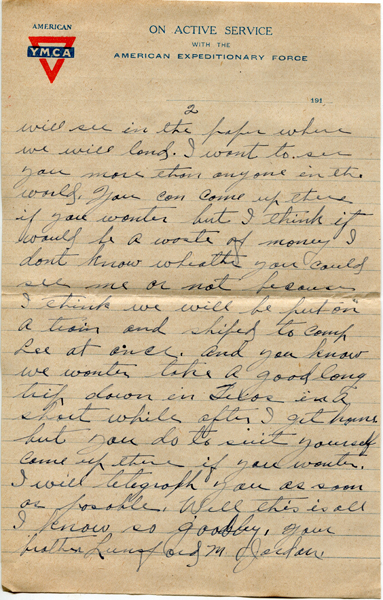 AMERICAN
YMCA
ON ACTIVE SERVICE
WITH THE
AMERICAN EXPEDITIONARY FORCE
191
2
will see in the paper where
we will land. I want to see
you more than anyone in the
world. You can come up there
if you wanter but I think it
would be a waste of money I
dont know wheather you could
see me or not because
I think we will be put on
a train and shiped to camp
Lee at once and you know
we wanter take a good long
trip down in Texas in a
short while after I get home
but you do to suit yourself
come up there if you wanter.
I will telegraph you as soon
as posable. Well this is all
I know so goodbuy. Your
brother Lunsford M Jordan.